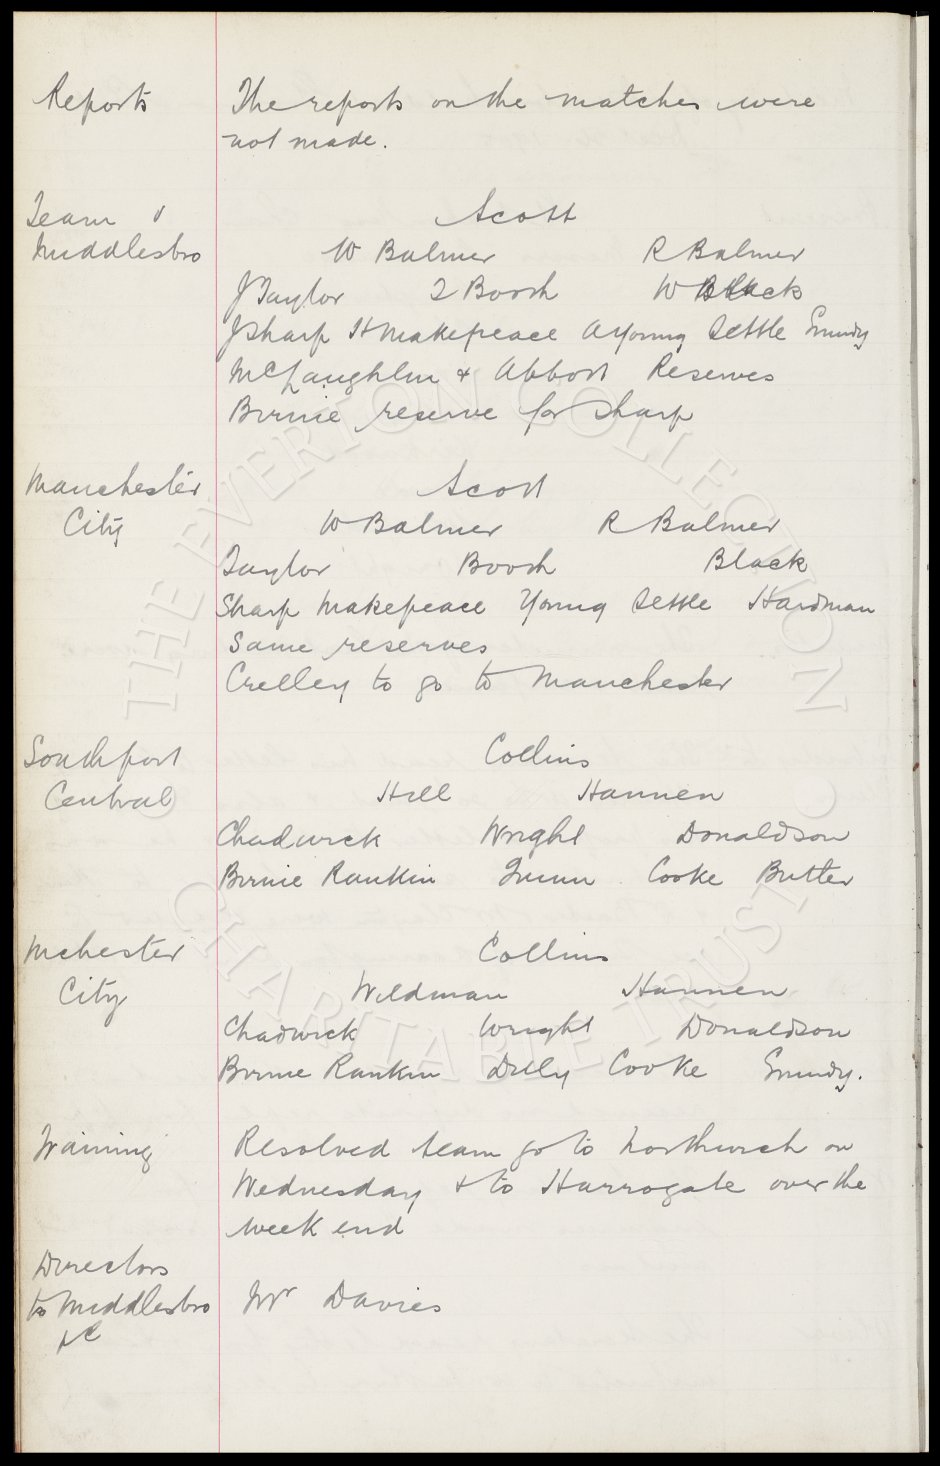 Reports The reports on the matches were
not made.
Team v Scott
Middlesbro W Balmer R Balmer
J Taylor T Booth W Black
J Sharp H Makepeace A Young Settle Grundy
McLaughlin & Abbott Reserves
Birnie reserve for Sharp
Manchester Scott
City W Balmer R Balmer
Taylor Booth Black
Sharp Makepeace Young Settle Hardman
Same reserves
Crelley to go to Manchester
Southport Collins
Central Hill Hannen
Chadwick Wright Donaldson
Birnie Rankin Cooke Butler
Mchester Collins
City Wildman Hannen
Chadwick Wright Donaldson
Birnie Rankin Dilly Cooke Grundy.
Training Resolved team go to Northwich on
Wednesday & to Harrogate over the
week end
Directors
to Middlesbro Mr Davies
THE EVERTON COLLECTION
CHARITABLE TRUST